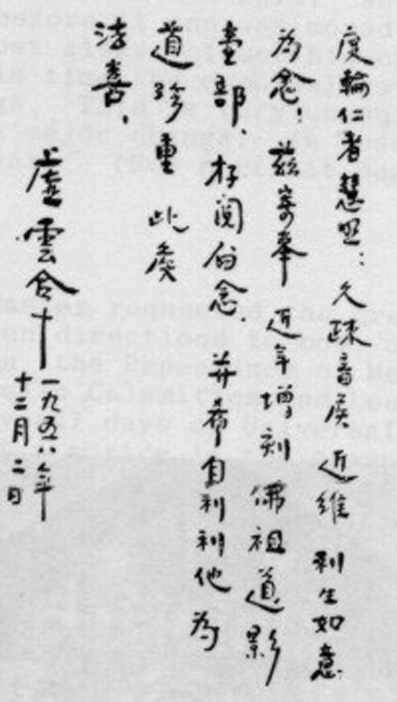 度輪仁者慧照：久疎音候近維 利生如意
為念！茲寄奉 近年增刻 佛祖道影
壹部、閱 念 并希自利利他為
道珍重 此候
法喜、
虛雲合十
一九五六年
十二月二日